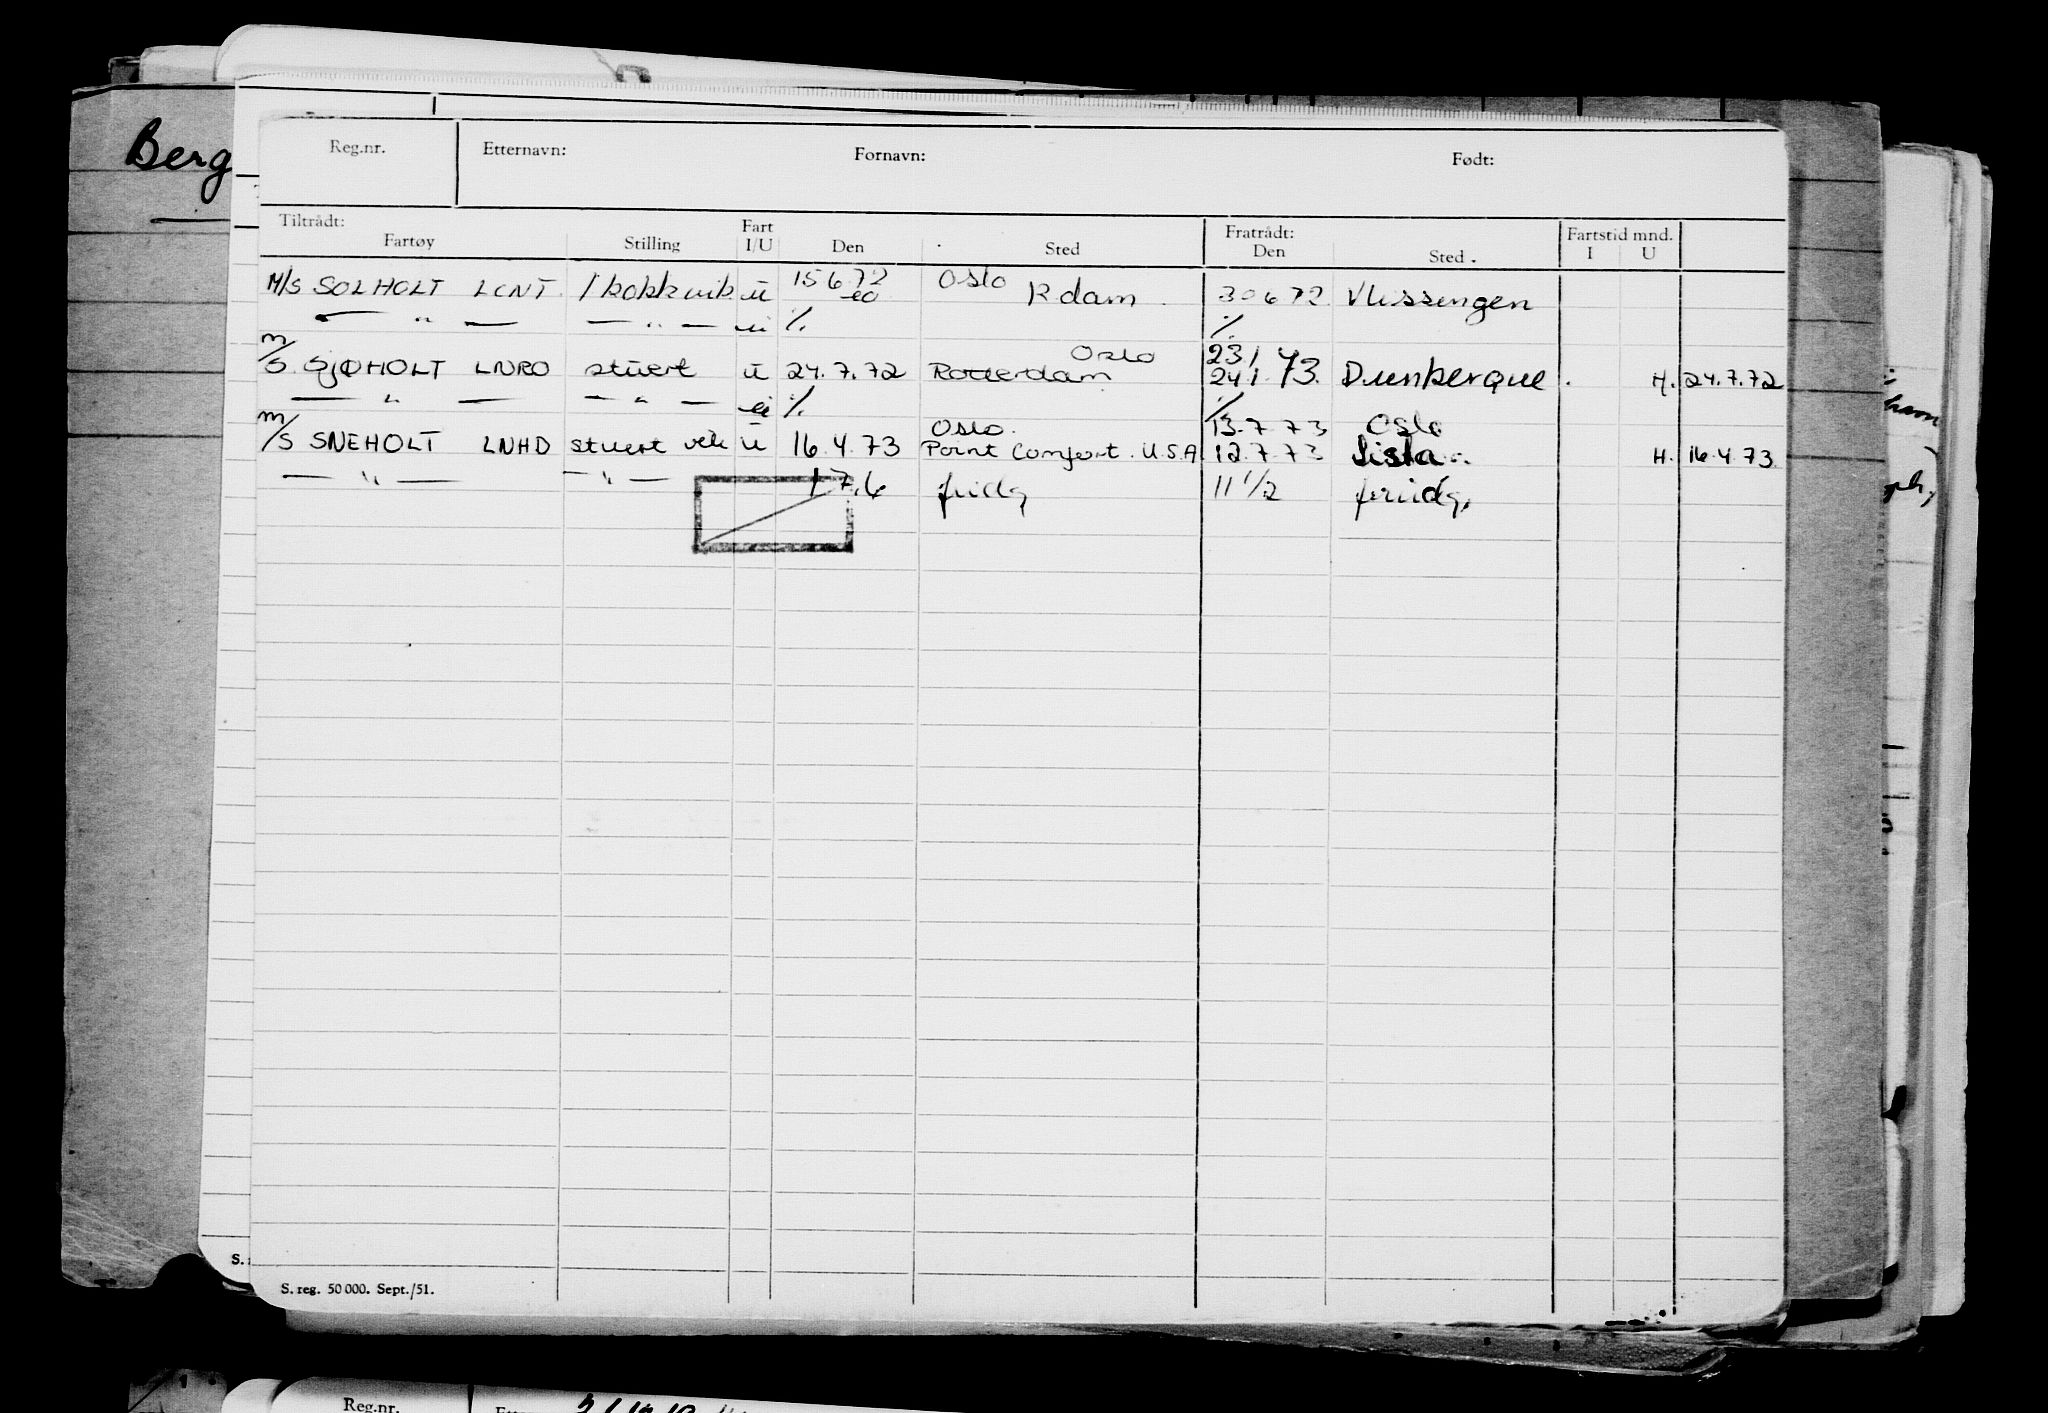 Berg
Reg.nr. Etternavn: Fornavn: Født:
Tiltrådt: Fratrådt: Fartstid mnd.
Fartøy Stilling Fart I/U Den Sted Den Sted. I U
M/S SOLHOLT LCNT 1 kokk vik u 15 6 72 Oslo R dam 30 6 72 Vlissingen
— " — — " — %. %.
Oslo 23 1
M/S SJØHOLT LNRO stuert u 24.7.72 Rotterdam 24 1. 73. Dunkerque. H. 24.7.72
— " — — " — %. %.
Oslo. 13.7 73 Oslo
M/S SNEHOLT LNHD stuert vik u 16.4.73 Point Comfort. U.S.A 12.7.73 H. 16.4.73
— " — — " — 17.6 fridg 11 1/2 fridg.
S. reg. 50 000. Sept./51.
Reg.nr.